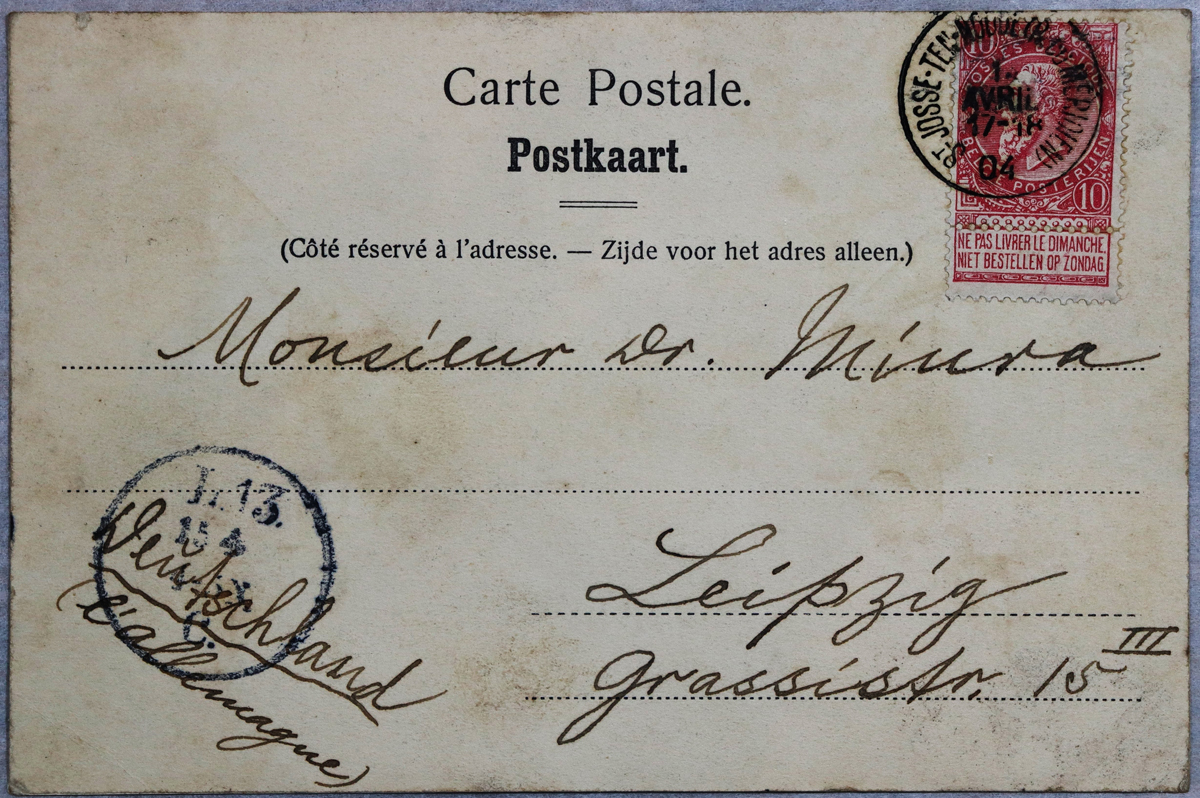 Carte Postale.
Postkaart.
(Côté réservé à l'adresse. — Zijde voor het adres alleen.)
10
ST-JOSSE-TEN-NOODE (MERIDIEN)
1-
AVRIL
17-18
04
POSTERIJEN 10
NE PAS LIVRER LE DIMANCHE
NIET BESTELLEN OP ZONDAG
Monsieur Dr. Miura
L. 13.
15 4
C.
Deutschland
(l'allemagne)
Leipzig
Grassistr. 15 III